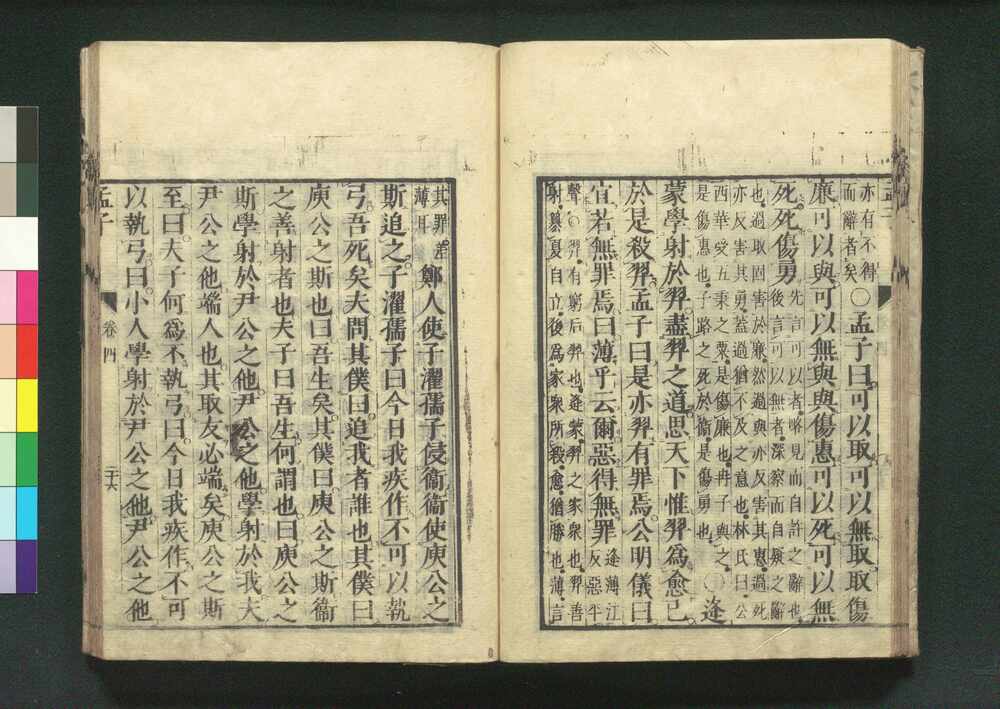 亦有不得
而辭者矣
〇孟子曰可以取可以無取取傷
廉可以與可以無與與傷惠可以死可以無
死死傷勇
先言可以者略見而自許之辭也
後言可以無者深察而自疑之辭
也過取固害於廉然過與亦反害其惠過死
亦反害其勇蓋過猶不及之意也林氏曰公
西華受五秉之粟是傷廉也冉子與之
是傷惠也子路之死於衞是傷勇也
〇逄
蒙學射於羿盡羿之道思天下惟羿為愈己
於是殺羿孟子曰是亦羿有罪焉公明儀曰
宜若無罪焉曰薄乎云爾惡得無罪
逄薄江
反惡平
聲〇羿有窮后羿也逄蒙羿之家衆也羿善
射簒夏自立後為家衆所殺愈猶勝也薄言
其罪差
薄耳
鄭人使子濯孺子侵衞衞使庾公之
斯追之子濯孺子曰今日我疾作不可以執
弓吾死矣夫問其僕曰追我者誰也其僕曰
庾公之斯也曰吾生矣其僕曰庾公之斯衞
之善射者也夫子曰吾生何謂也曰庾公之
斯學射於尹公之他尹公之他學射於我夫
尹公之他端人也其取友必端矣庾公之斯
至曰夫子何為不執弓曰今日我疾作不可
以執弓曰小人學射於尹公之他尹公之他
孟子
卷四
二十六